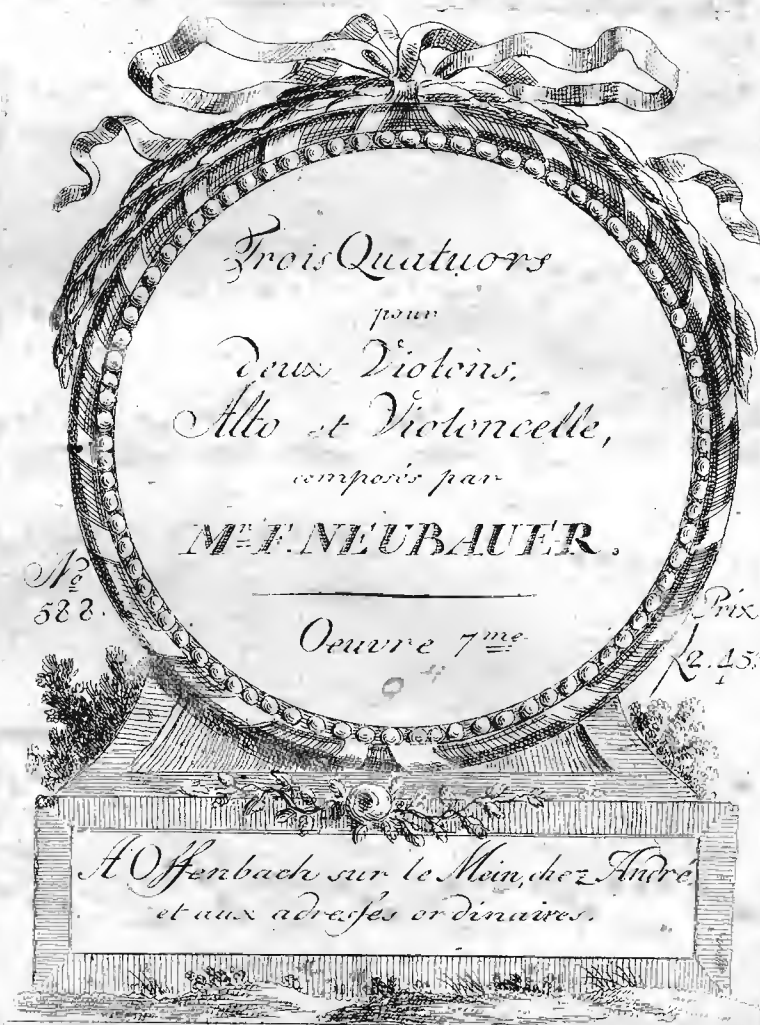 Trois Quatuors
pour
Deux Violons,
Alto et Violoncelle,
composés par
Mr. F. NEUBAUER.
No
588.
Prix
f 2.45.
Oeuvre 7me
A Offenbach sur le Mein, chez André
et aux adresses ordinaires.